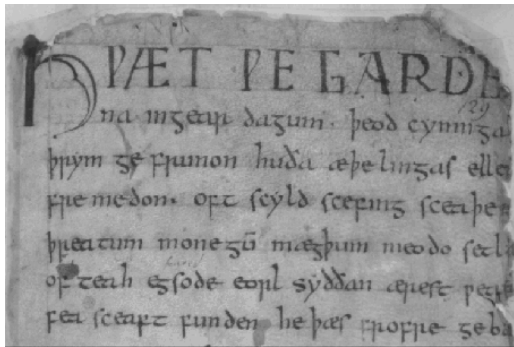 HǷÆT ǷE GARDE
na ingear dagum. þeod cyninga
þrym ge frunon huða æþelingas ellen
fre medon. oft scyld scefing sceaþe
þreatum monegū mægþum meodo setl
of teah egsode eorl syððan ærest ƿear
fea sceaft funden he þæs frofre geba